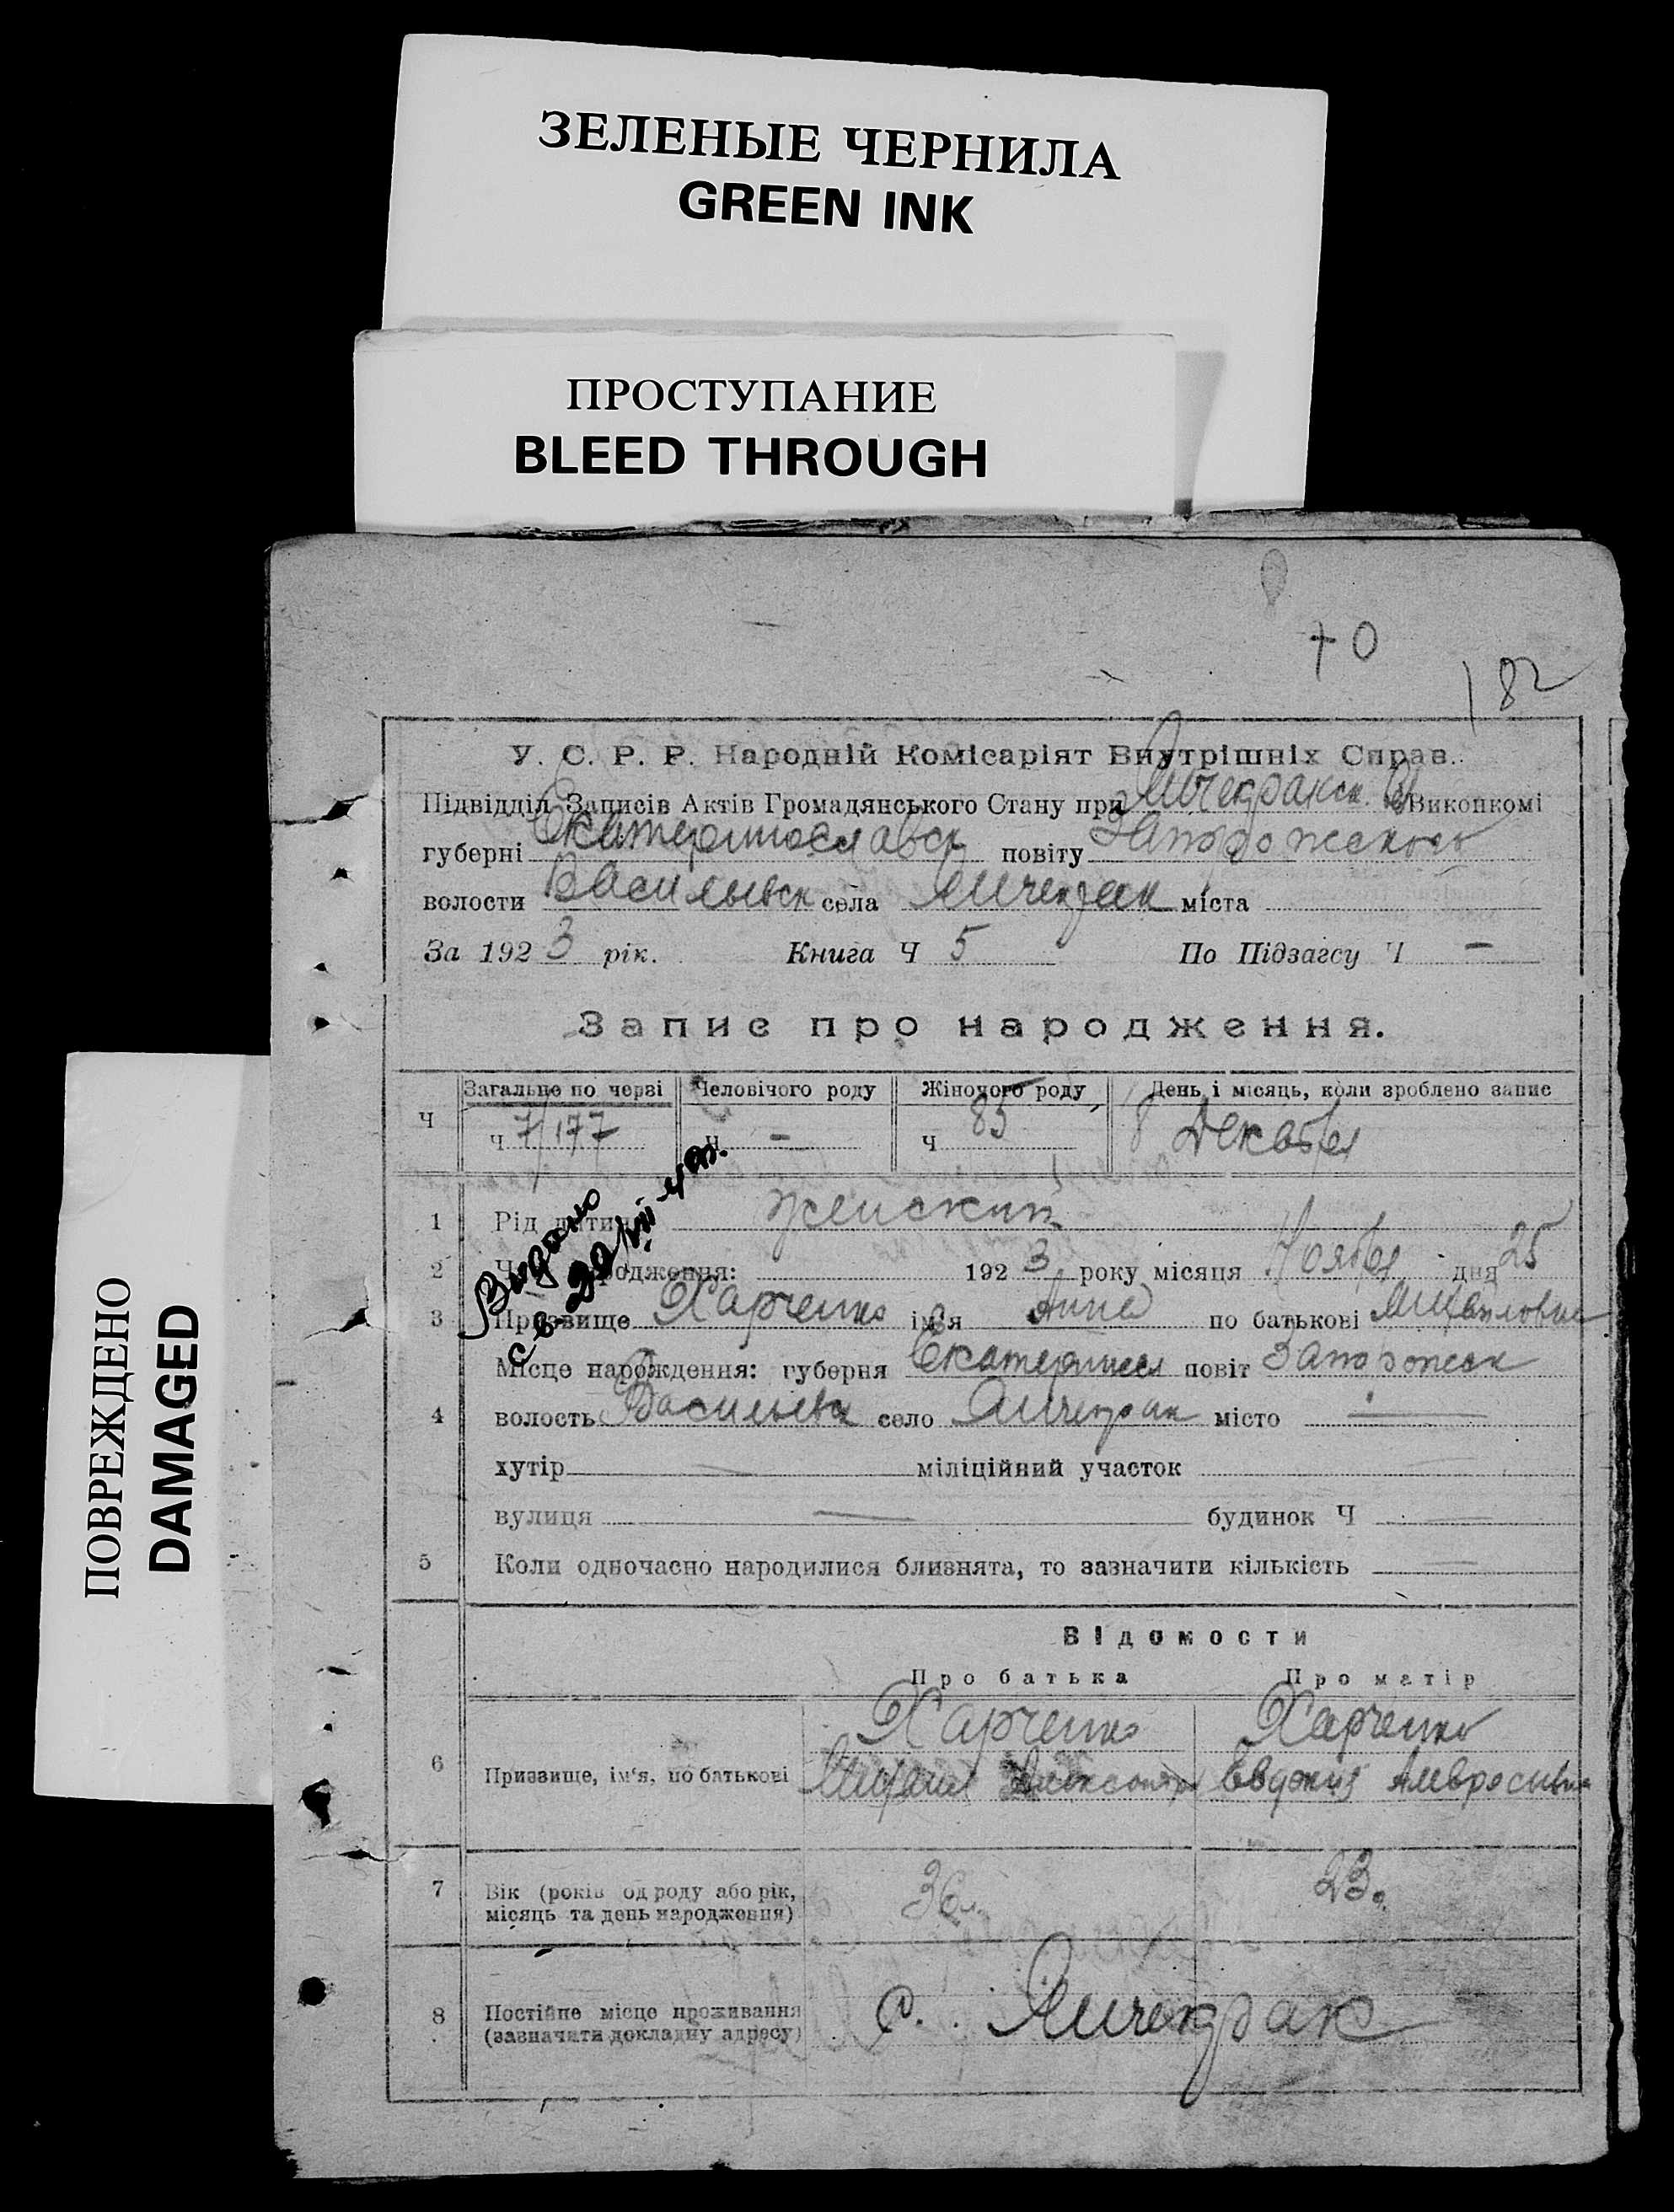 ЗЕЛЕНЫЕ ЧЕРНИЛА
GREEN INK
ПРОСТУПАНИЕ
BLEED THROUGH
ПОВРЕЖДЕНО
DAMAGED
+ 0
182
У. С. Р. Р. Народній Комісаріят Внутрішніх Справ.
Підвідділ Записів Актів Громадянського Стану при Янчекракск. Виконкомі
губерні Екатеринославск повіту Запорожского
волости Васильевск села Янчекрак міста
За 1923 рік. Книга Ч 5 По Підзагсу Ч —
Запис про народження.
Ч Загальне по черзі Человічого роду Жіночого роду День і місяць, коли зроблено запис
ч 7/177 ч — ч 85 8 Декабря
1 Рід дитини женский
2 народження: 1923 року місяця Ноября дня 25
3 Призвище Харченко ім'я Анна по батькові Михайловна
Місце народження: губерня Екатериносл повіт Запорожск
4 волость Васильевск село Янчекрак місто —
хутір — міліційний участок
вулиця — будинок Ч —
5 Коли одночасно народилися близнята, то зазначити кількість —
Видано
Відомости
Про батька Про матір
Харченко Харченко
6 Призвище, ім'я, по батькові Михаил Александр Евдокия Амвросивна
7 Вік (років од роду або рік, місяць та день народження) 36 л. 23.
8 Постійне місце проживання (зазначити докладну адресу) С. Янчекрак